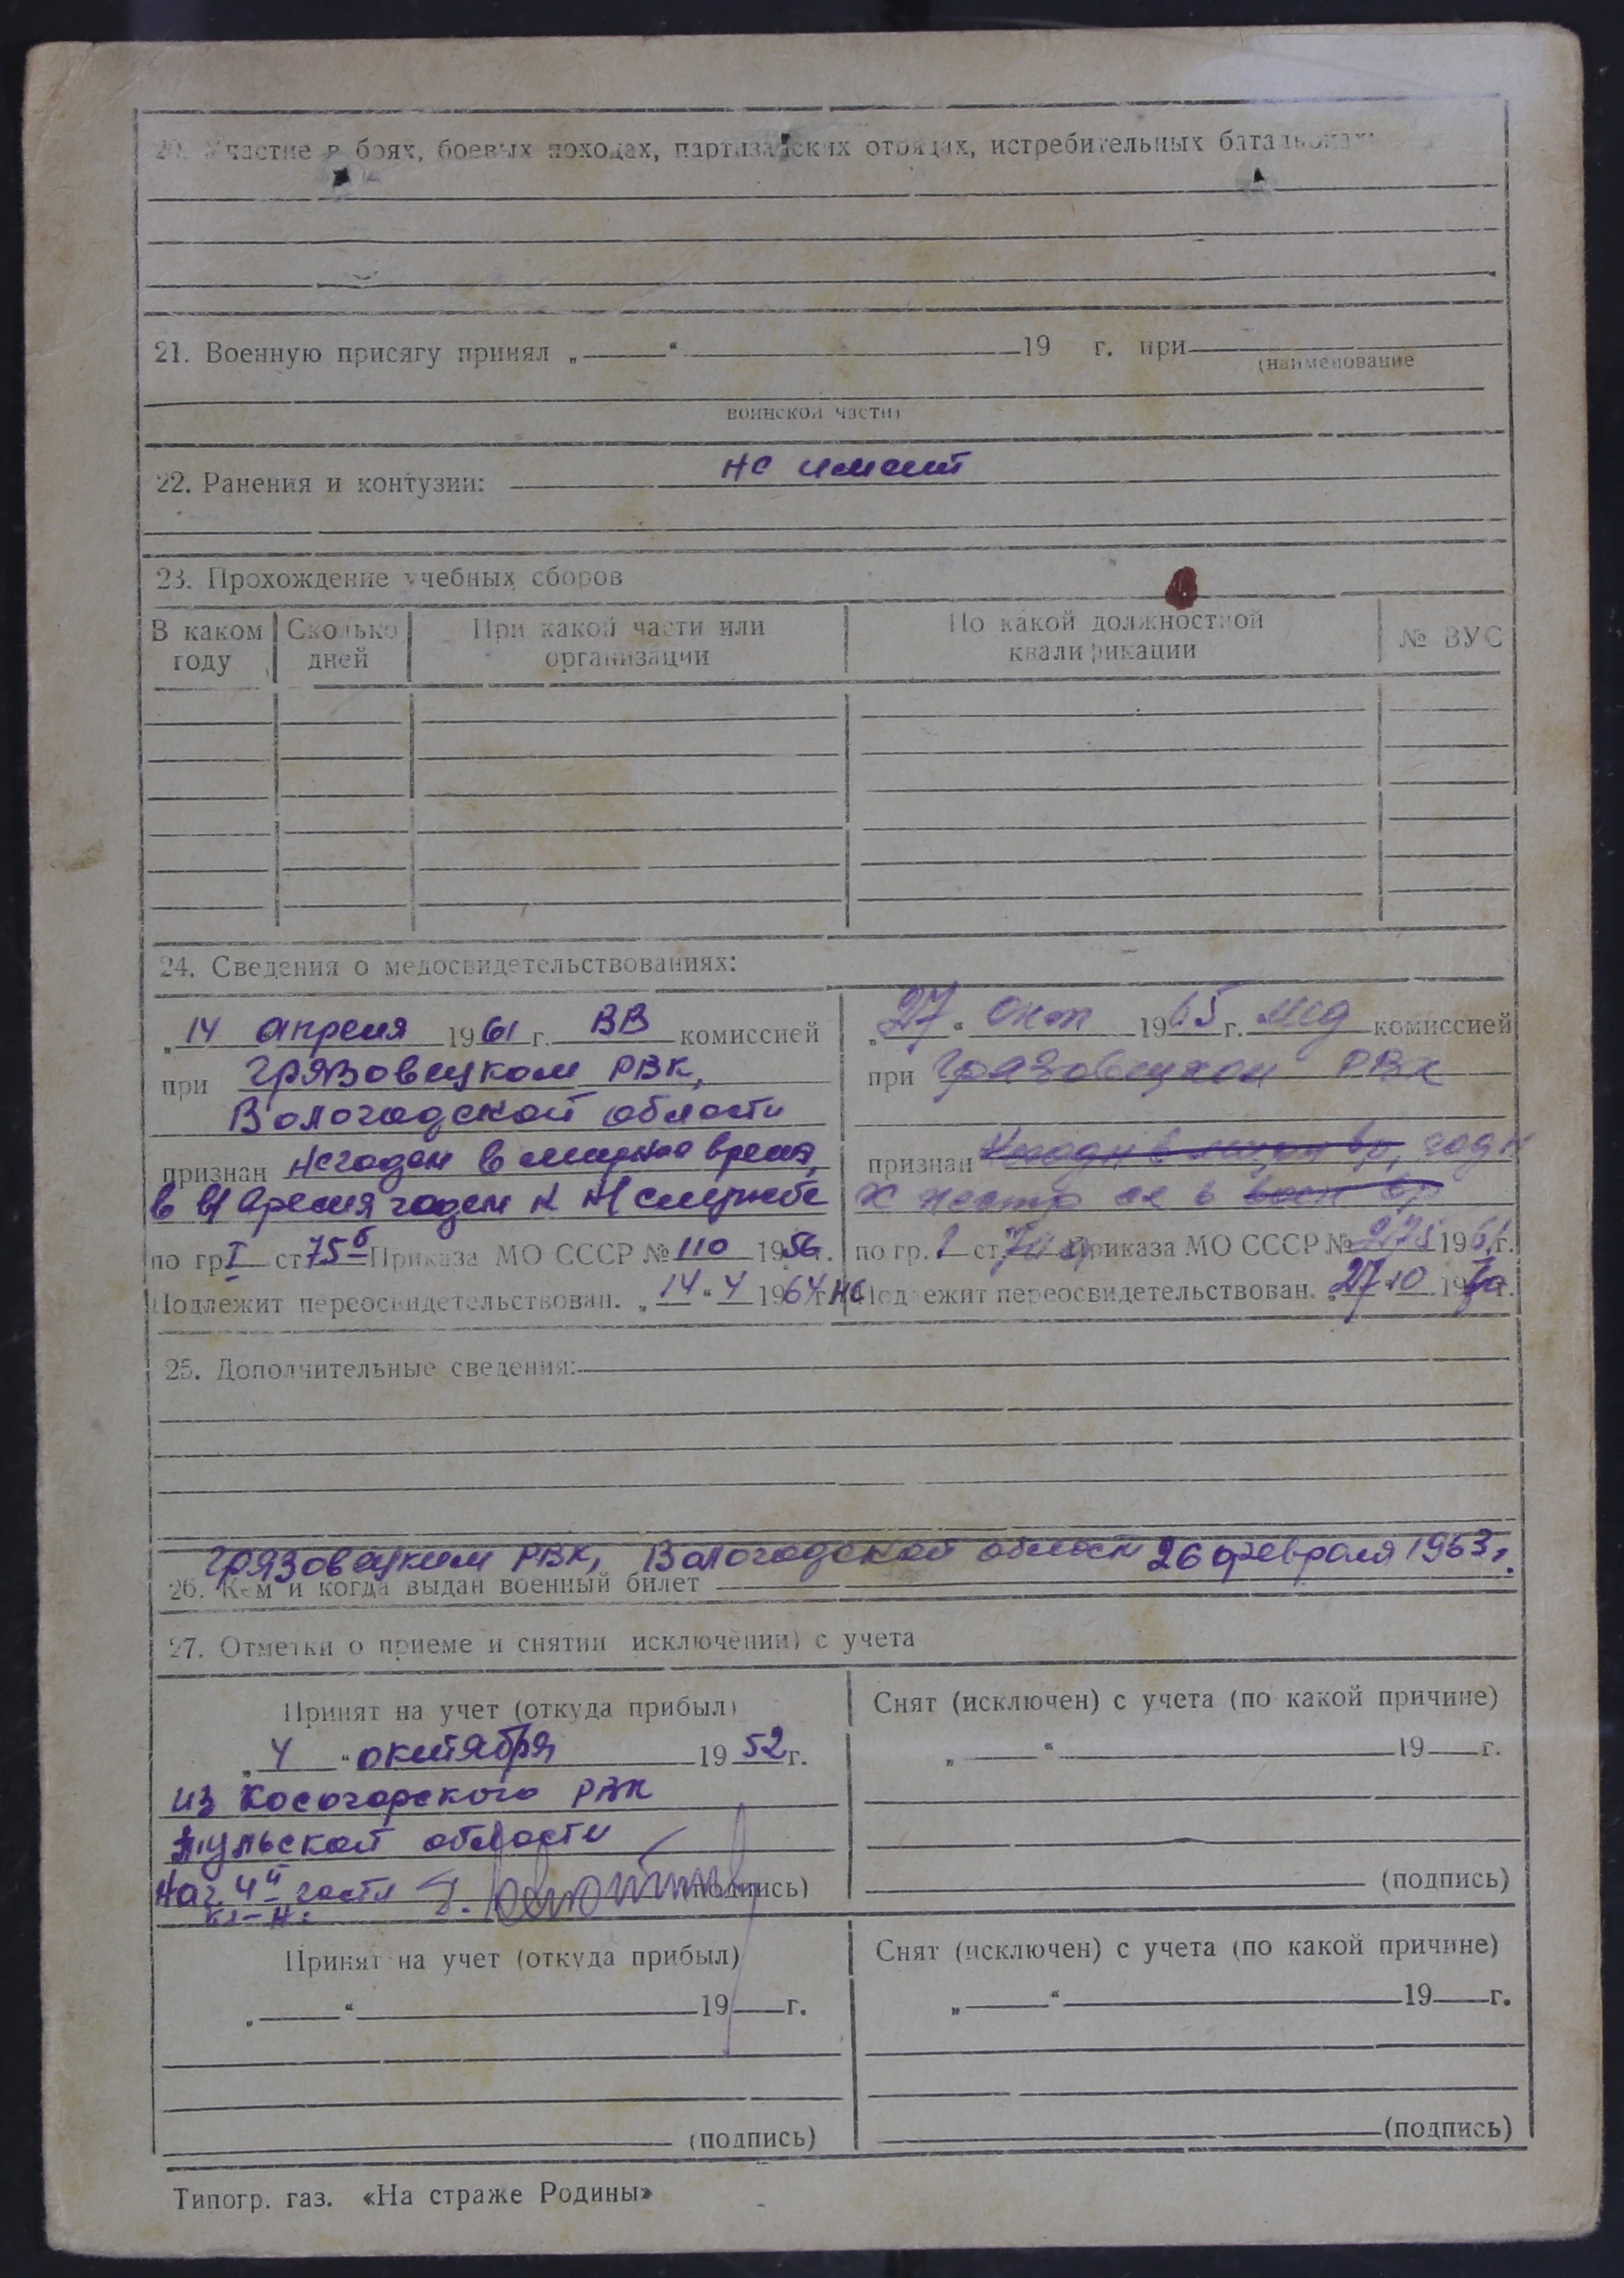 20. Участие в боях, боевых походах, партизанских отрядах, истребительных батальонах:
21. Военную присягу принял „ “ 19 г. при
(наименование
воинской части)
22. Ранения и контузии: не имеет
23. Прохождение учебных сборов
В каком году Сколько дней При какой части или организации По какой должностной квалификации № ВУС
24. Сведения о медосвидетельствованиях:
„14 апреля 1961 г. ВВ комиссией
при Грязовецком РВК,
Вологодской области
признан негоден в мирное время,
в в/время годен к н/службе
по гр I ст 75б Приказа МО СССР № 110 1956г.
Подлежит переосвидетельствован. „14“ 4 1964г.
„27“ окт 1965 г. мед комиссией
при Грязовецком РВК
признан негодн в мирн вр, годн
к нестр сл в воен вр
по гр. 1 ст Приказа МО СССР № 275 196 г.
не Подлежит переосвидетельствован. „27“ 10 1970г.
25. Дополнительные сведения:
Грязовецким РВК, Вологодской области 26 февраля 1963г.
26. Кем и когда выдан военный билет
27. Отметки о приеме и снятии исключении) с учета
Принят на учет (откуда прибыл)
„4“ октября 1952г.
из Косогорского РВК
Тульской области
Нач. 4й части (подпись)
к-н:
Снят (исключен) с учета (по какой причине)
„ “ 19 г.
(подпись)
Принят на учет (откуда прибыл)
„ “ 19 г.
(подпись)
Снят (исключен) с учета (по какой причине)
„ “ 19 г.
(подпись)
Типогр. газ. «На страже Родины»